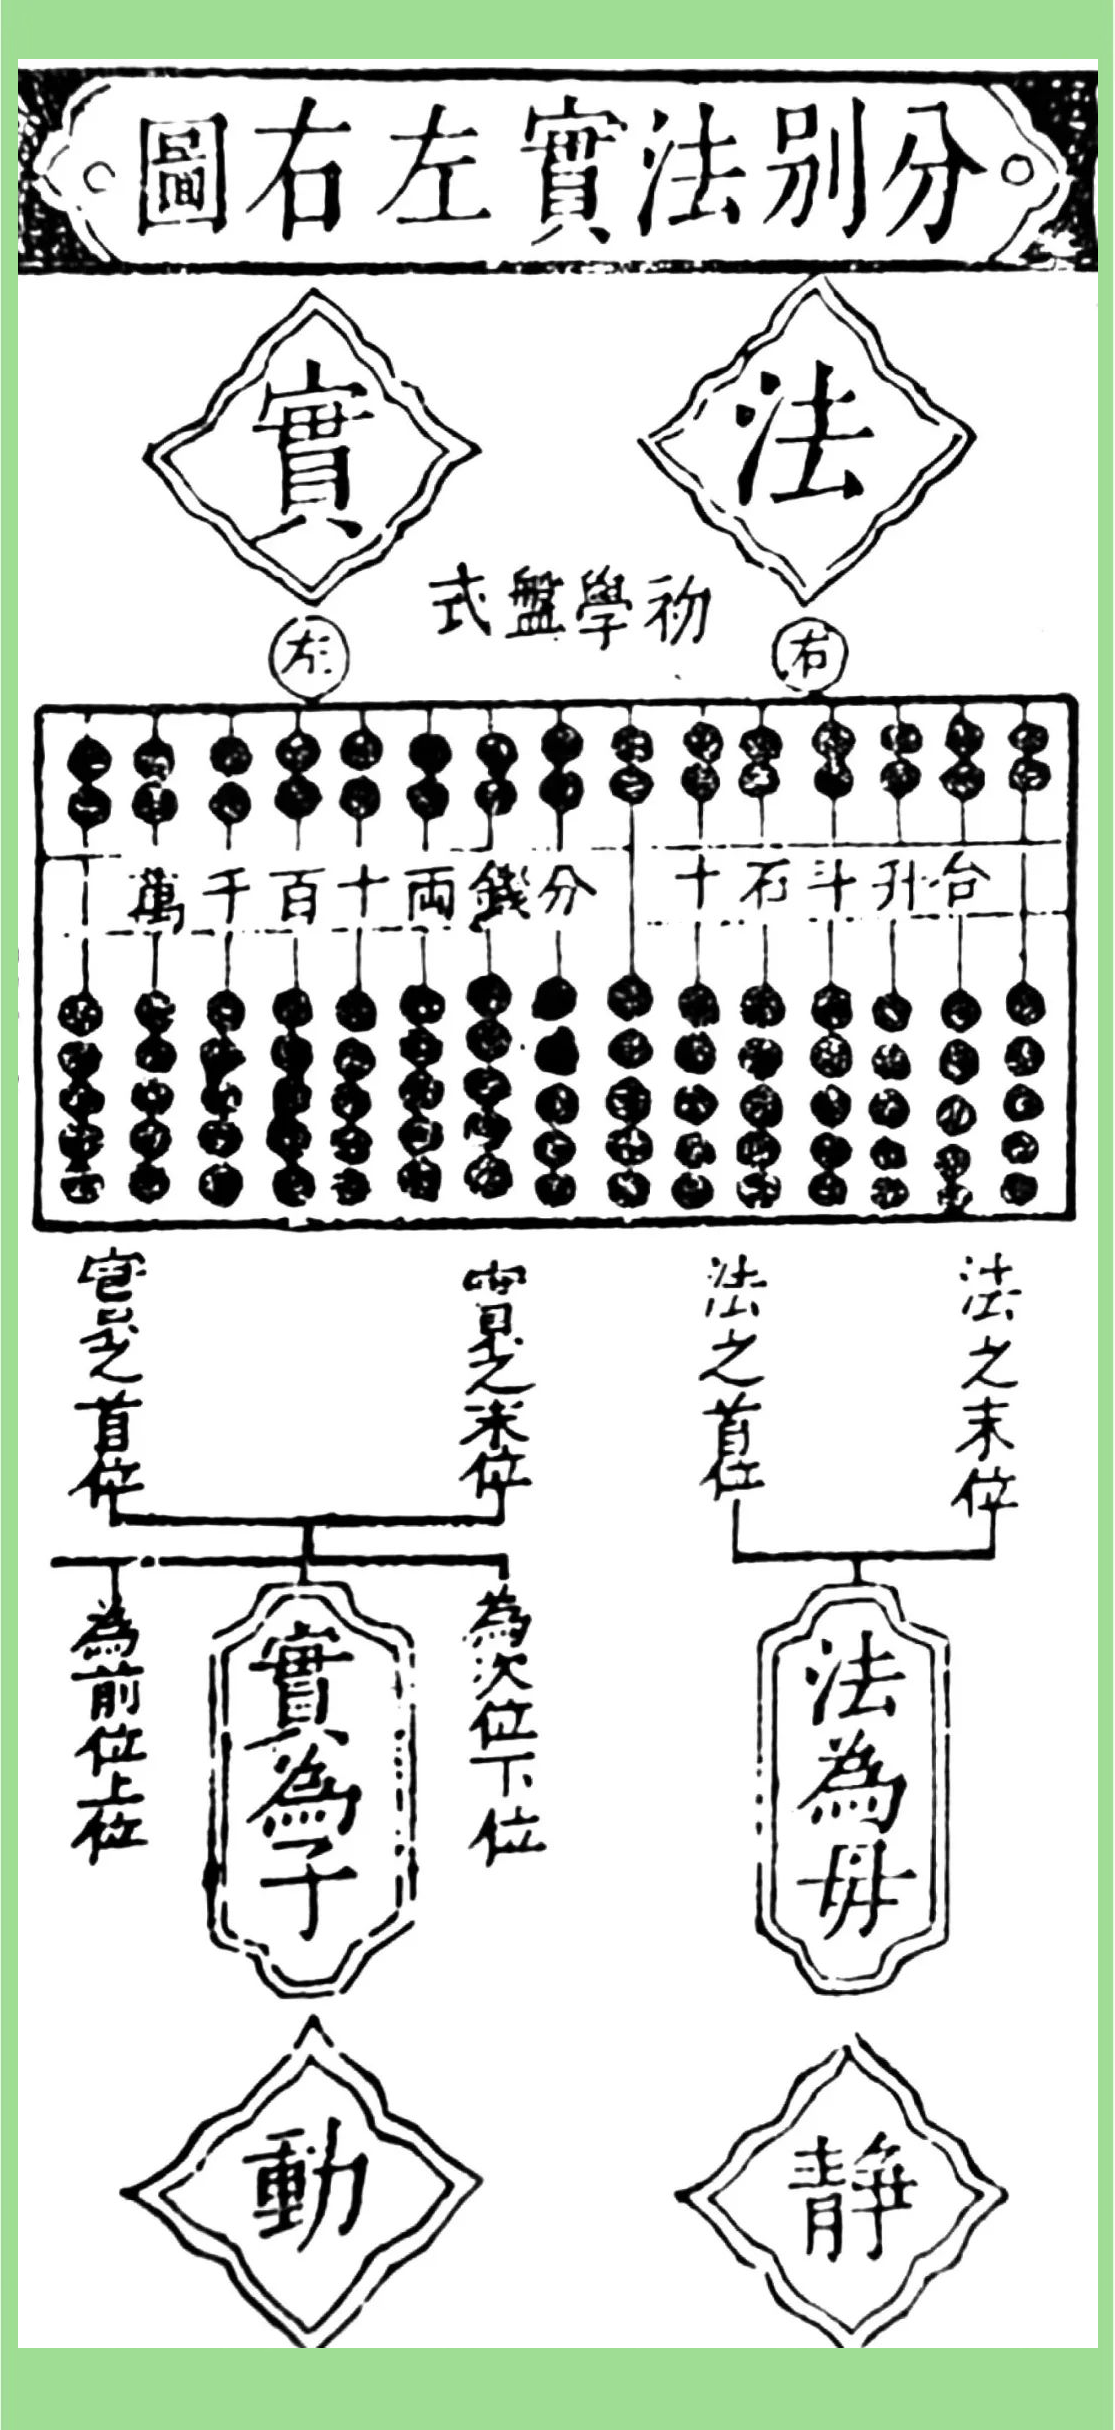 分別法實左右圖
法
實
初學盤式
右
左
十石斗升合
萬千百十兩錢分
法之末位
法之首位
實之末位
實之首位
法為母
為次位下位
實為子
為前位上位
靜
動